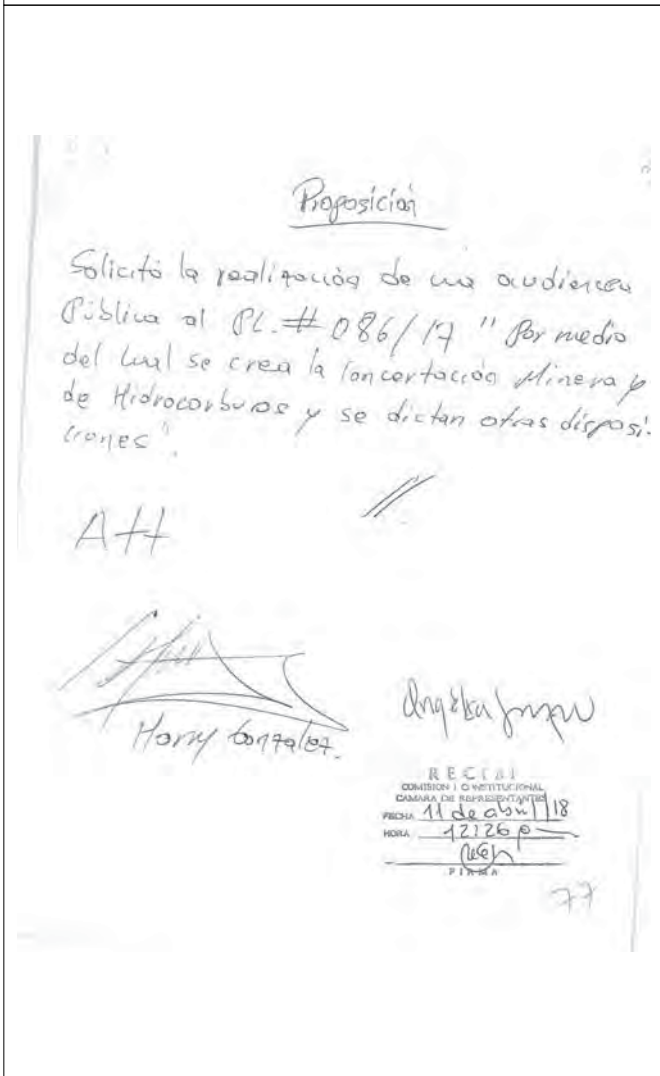 Proposición
Solicitó la realización de una audiencia
Pública al PL. # 086/17 "Por medio
del cual se crea la concertación Minera y
de Hidrocarburos y se dictan otras disposi-
ciones".
Att
Harry Gonzalez.
Angélica
RECIBI
COMISION I CONSTITUCIONAL
CAMARA DE REPRESENTANTES
FECHA 11 de abril/18
HORA 12:26 p
FIRMA
77